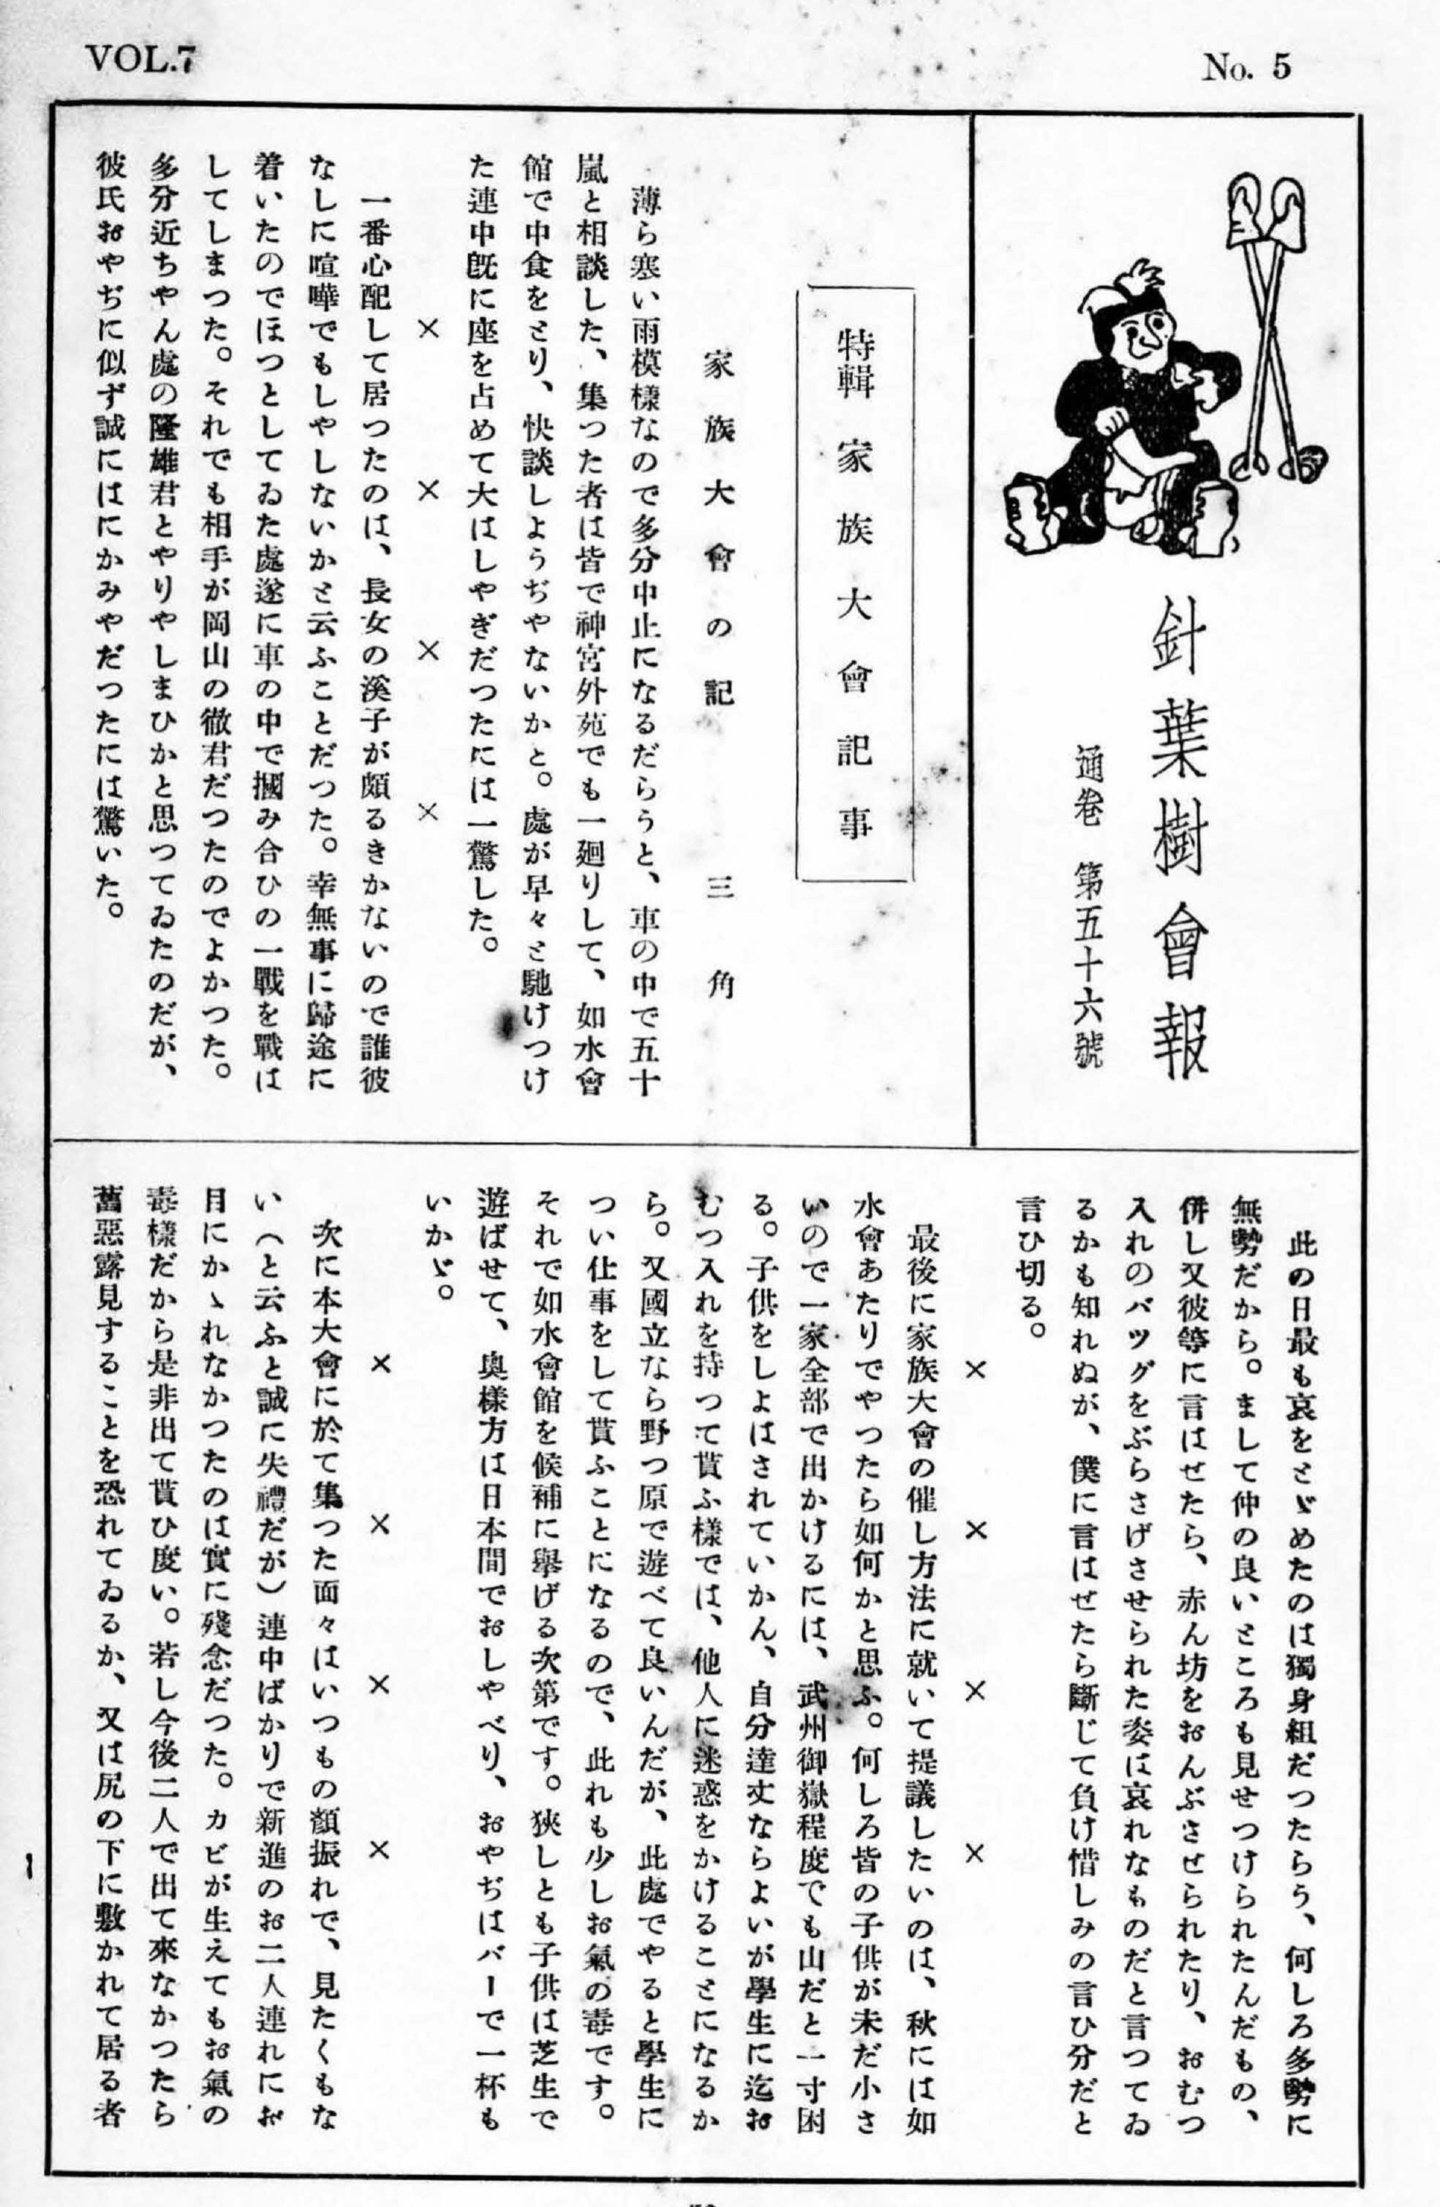 VOL.7
No. 5
針葉樹會報
通卷 第五十六號
特輯 家族大會記事
家族大會の記 三角
薄ら寒い雨模樣なので多分中止になるだらうと、車の中で五十
嵐と相談した、集つた者は皆で神宮外苑でも一廻りして、如水會
館で中食をとり、快談しようぢやないかと。處が早々と馳けつけ
た連中既に座を占めて大はしやぎだつたには一驚した。
× × × ×
一番心配して居つたのは、長女の溪子が頗るきかないので誰彼
なしに喧嘩でもしやしないかと云ふことだつた。幸無事に歸途に
着いたのでほつとしてゐた處遂に車の中で摑み合ひの一戰を戰は
してしまつた。それでも相手が岡山の徹君だつたのでよかつた。
多分近ちやん處の隆雄君とやりやしまひかと思つてゐたのだが、
彼氏おやぢに似ず誠にはにかみやだつたには驚いた。
此の日最も哀をとゞめたのは獨身組だつたらう、何しろ多勢に
無勢だから。まして仲の良いところも見せつけられたんだもの、
併し又彼等に言はせたら、赤ん坊をおんぶさせられたり、おむつ
入れのバツグをぶらさげさせられた姿は哀れなものだと言つてゐ
るかも知れぬが、僕に言はせたら斷じて負け惜しみの言ひ分だと
言ひ切る。
× × × ×
最後に家族大會の催し方法に就いて提議したいのは、秋には如
水會あたりでやつたら如何かと思ふ。何しろ皆の子供が未だ小さ
いので一家全部で出かけるには、武州御嶽程度でも山だと一寸困
る。子供をしよはされていかん、自分達丈ならよいが學生に迄お
むつ入れを持つて貰ふ樣では、他人に迷惑をかけることになるか
ら。又國立なら野つ原で遊べて良いんだが、此處でやると學生に
つい仕事をして貰ふことになるので、此れも少しお氣の毒です。
それで如水會館を候補に擧げる次第です。狹しとも子供は芝生で
遊ばせて、奥樣方は日本間でおしやべり、おやぢはバーで一杯も
いかゞ。
× × × ×
次に本大會に於て集つた面々はいつもの顏振れで、見たくもな
い（と云ふと誠に失禮だが）連中ばかりで新進のお二人連れにお
目にかゝれなかつたのは實に殘念だつた。カビが生えてもお氣の
毒樣だから是非出て貰ひ度い。若し今後二人で出て來なかつたら
舊惡露見することを恐れてゐるか、又は尻の下に敷かれて居る者
1